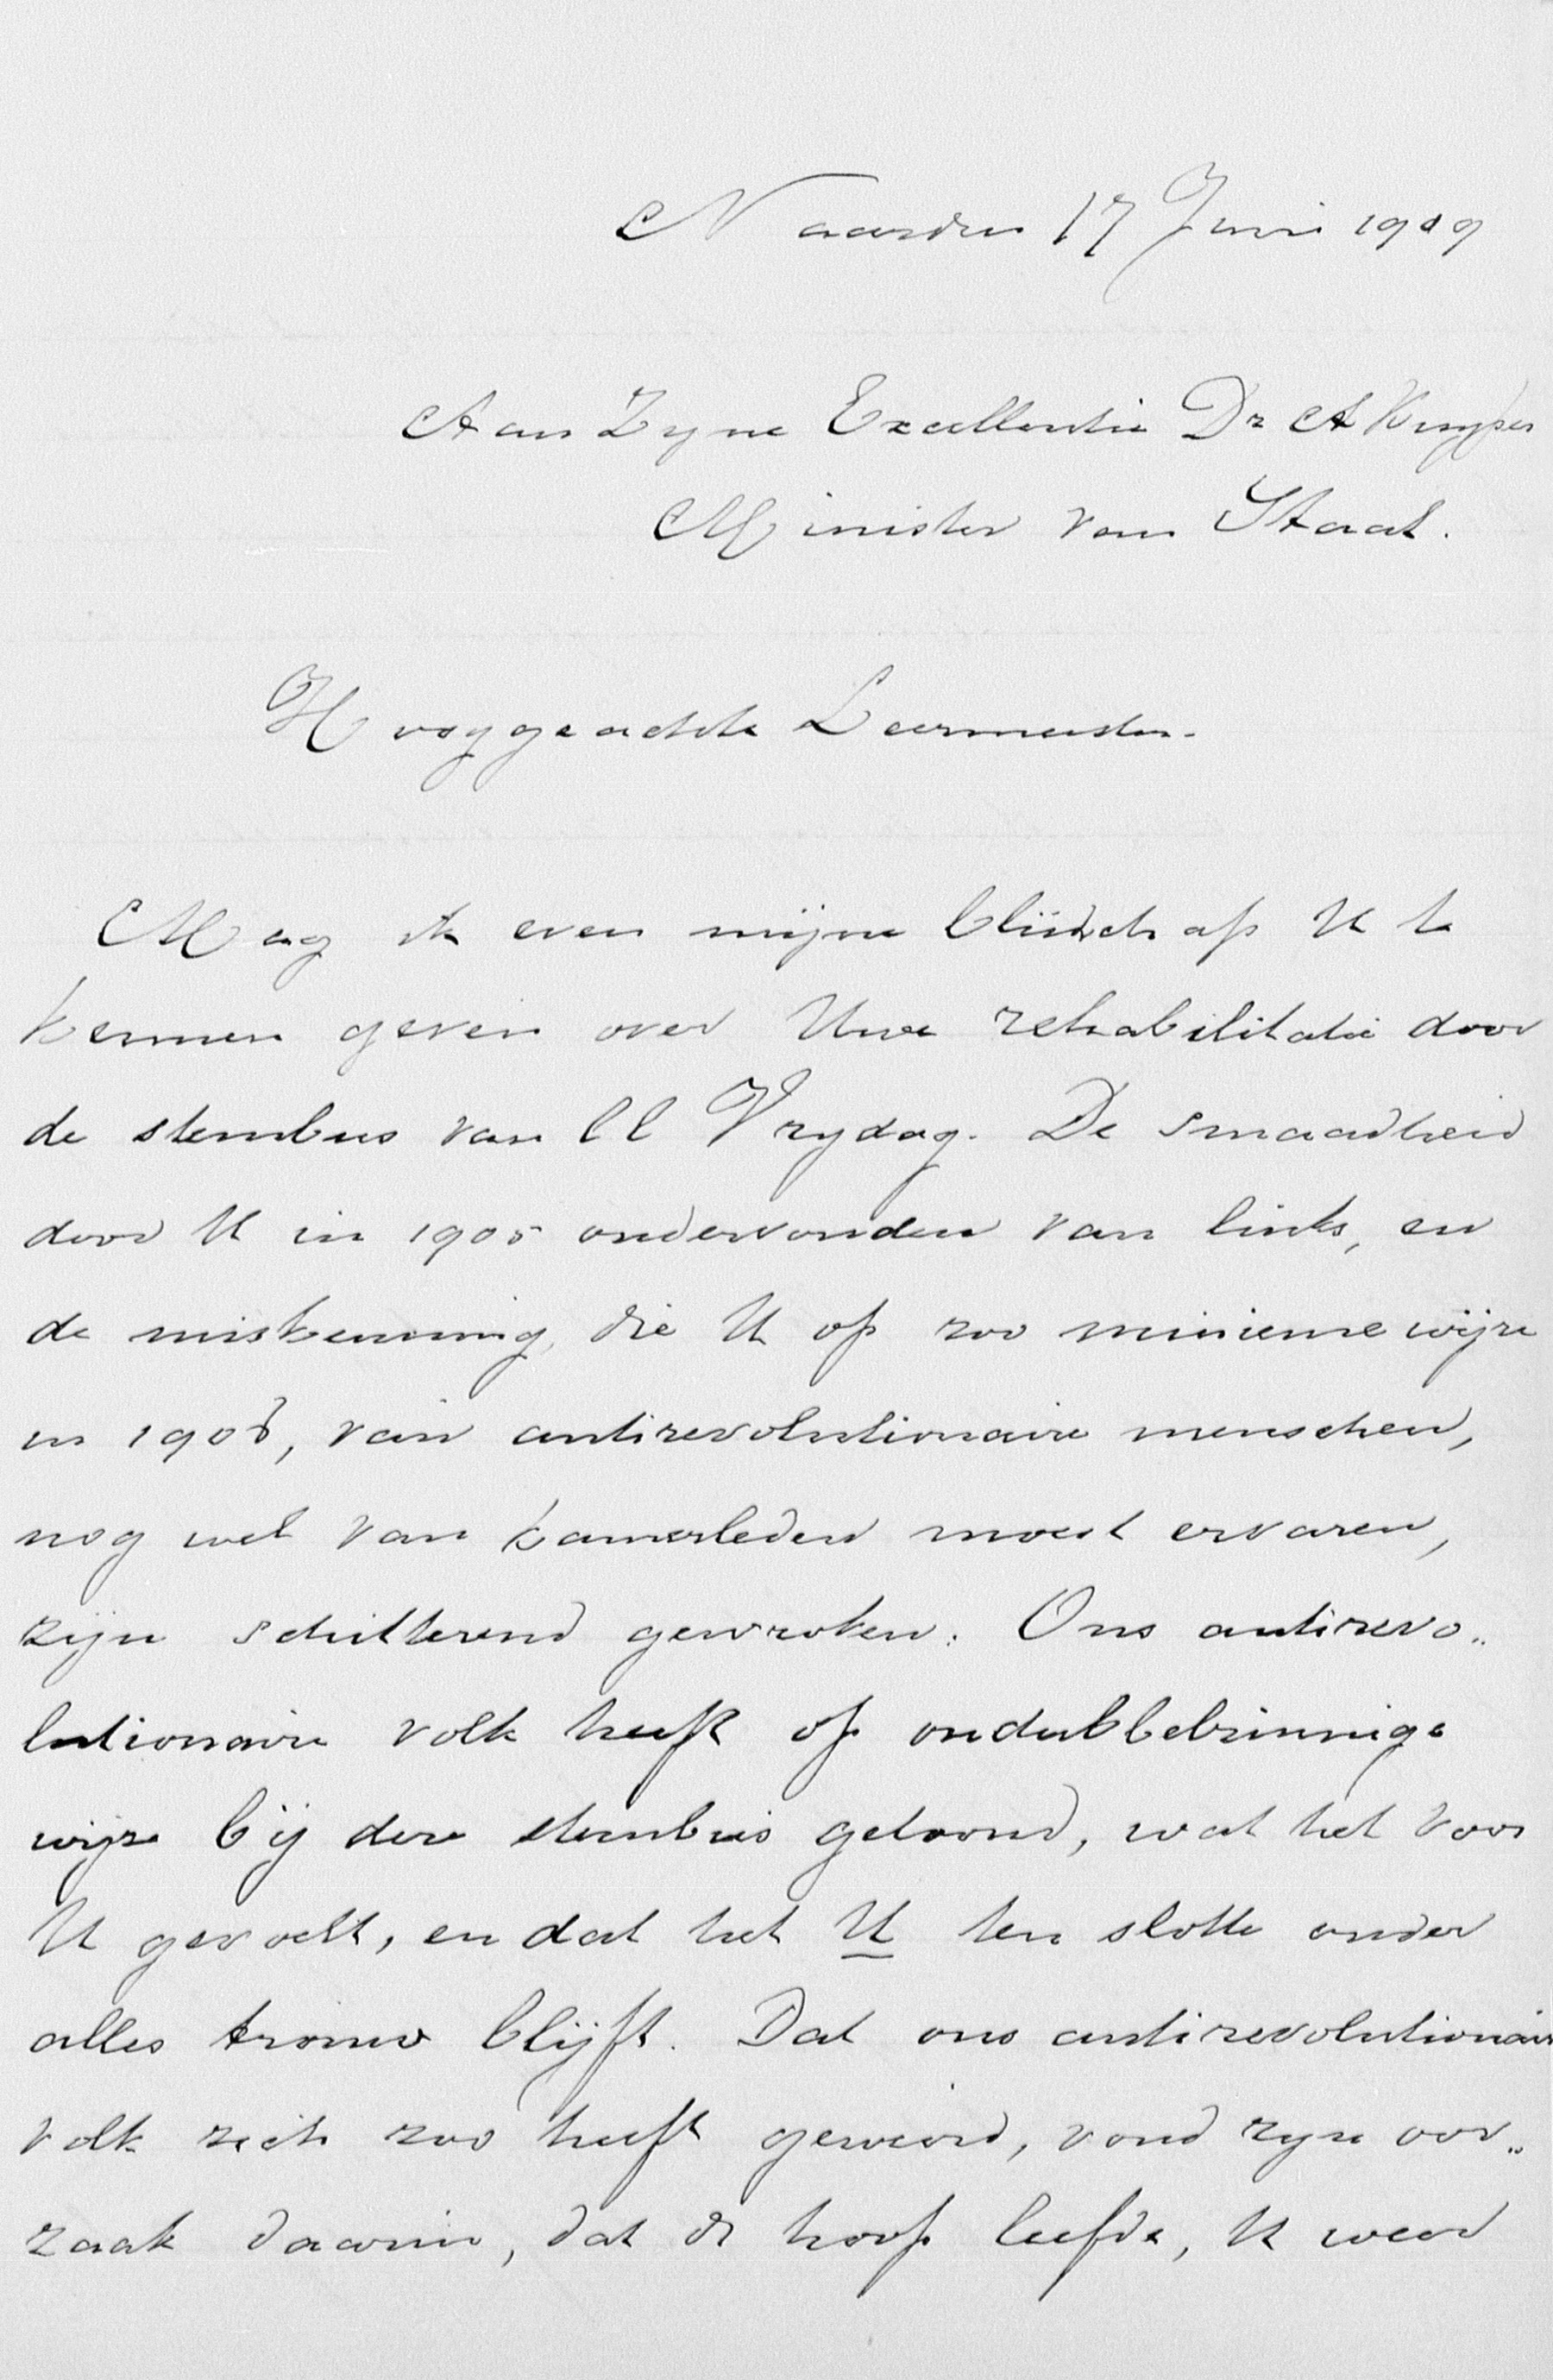 Naarden 17 Juni 1909
Aan Zyne Excellentie Dr A Kuyper
Minister van Staat.
Hooggeachte Leermeester.
Mag ik even mijne blijdschap U te
kennen geven over Uwe rehabilitatie door
de stembus van ll Vrydag. De smaadheid
door U in 1905 ondervonden van links, en
de miskenning, die U op zoo minieme wijze
in 1908, van antirevolutionaire menschen,
nog wel van kamerleden moest ervaren,
zijn schitterend gewroken. Ons antirevo„
lutionaire volk heeft op ondubbelzinnige
wijze bij deze stembus getoond, wat het voor
U gevoelt, en dat het U ten slotte onder
alles trouw blijft. Dat ons antirevolutionair
volk zich zoo heeft geweerd, vond zyn oor„
zaak daarin, dat de hoop leefde, U weer